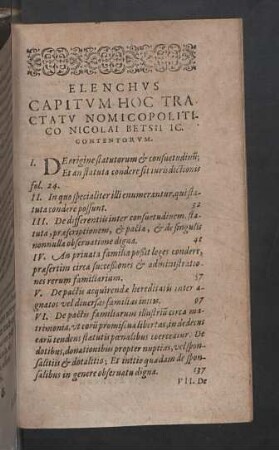 ELENCHVS
CAPITVM HOC TRA-
CTATV NOMICOPOLITI-
CO NICOLAI BETSII IC.
CONTENTORVM.
I. DE origine statutorum & consuetudinũ;
Et an statuta condere sit iurisdictionis
fol. 24.
II. In quo specialiter illi enumerantur, qui sta-
tuta condere possunt. 32
III. De differentiis inter consuetudinem, sta-
tuta, præscriptionem, & pacta, & de singulis
nonnulla observatione digna. 45
IV. An privata familia possit leges condere,
præsertim circa successiones & administratio-
nes rerum familiarium. 57
V. De pactis acquirendæ hereditatis inter a-
gnatos vel diversas familias initis. 67
VI. De pactis familiarum illustriũ circa ma-
trimonia, ut eorũ promiscua libertas, in dedecus
earũ tendens statutis penalibus coerceatur. De
dotibus, donationibus propter nuptias, vel spon-
salitiis & dotalitio; Et initio quædam de spon-
salibus in genere observatu digna. 137
VII. De